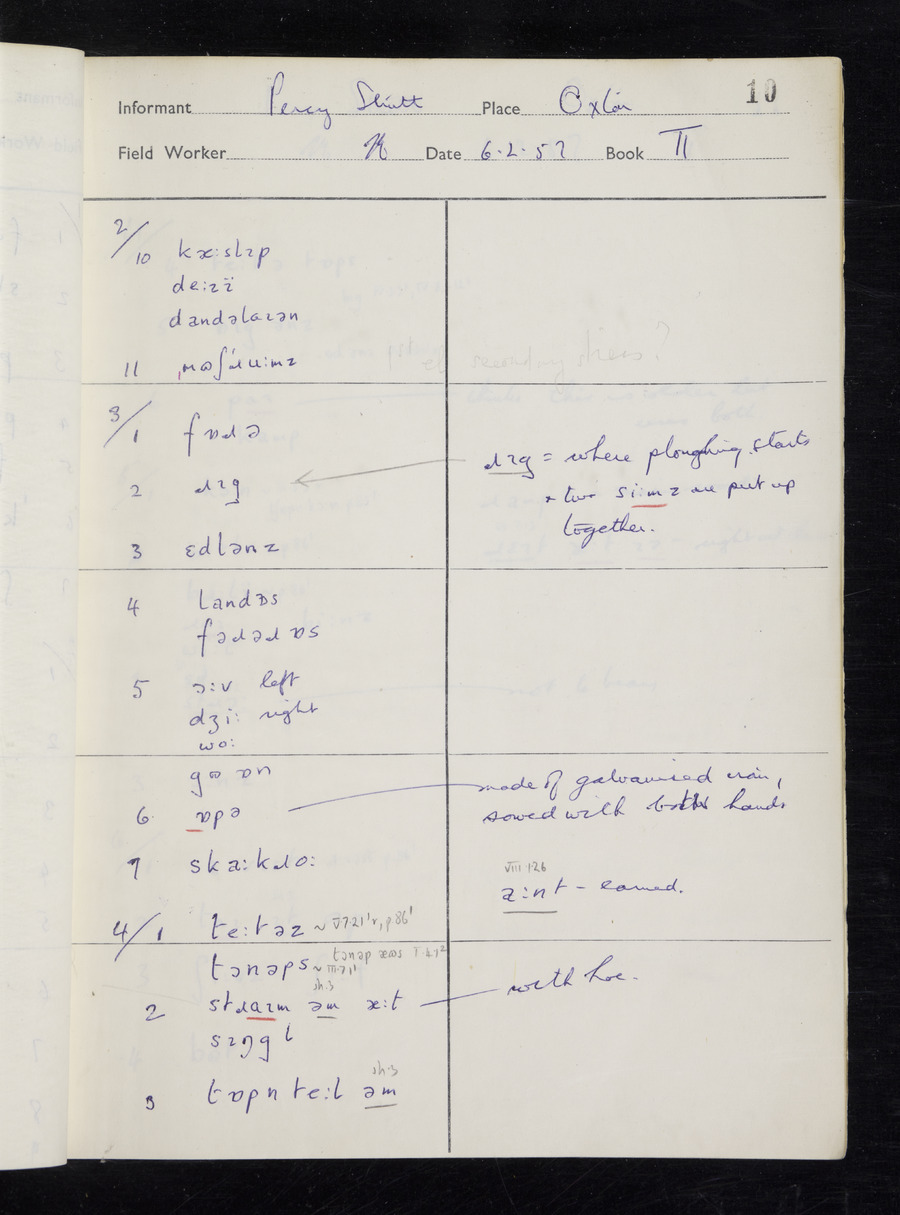 10
Informant Percy Place
Field Worker Date 6.2.57 Book II
2/10 kæ:slɪp
de:zɪ
dandəlaɪən
11
3/1 fɒɹə
2 ɹɪg
ɹɪg = where ploughing starts
+ two si:mz are put up
together.
3 ɛdlənz
4 landɒs
fəɹəɹɒs
5 ɔ:v left
dʒi: right
wo:
gʊ ɒn
6 ɒpə
made of galvanised iron,
sowed with both hands
7 ska:kɹo:
VIII 1.26
a:nt - earned.
4/1 te:təz ~ V.7.21
tənəps ~
sh.3
2 stɹaɪm əm æ:t
with hoe.
sɪŋgl
sh.3
3 tɒpnte:l əm